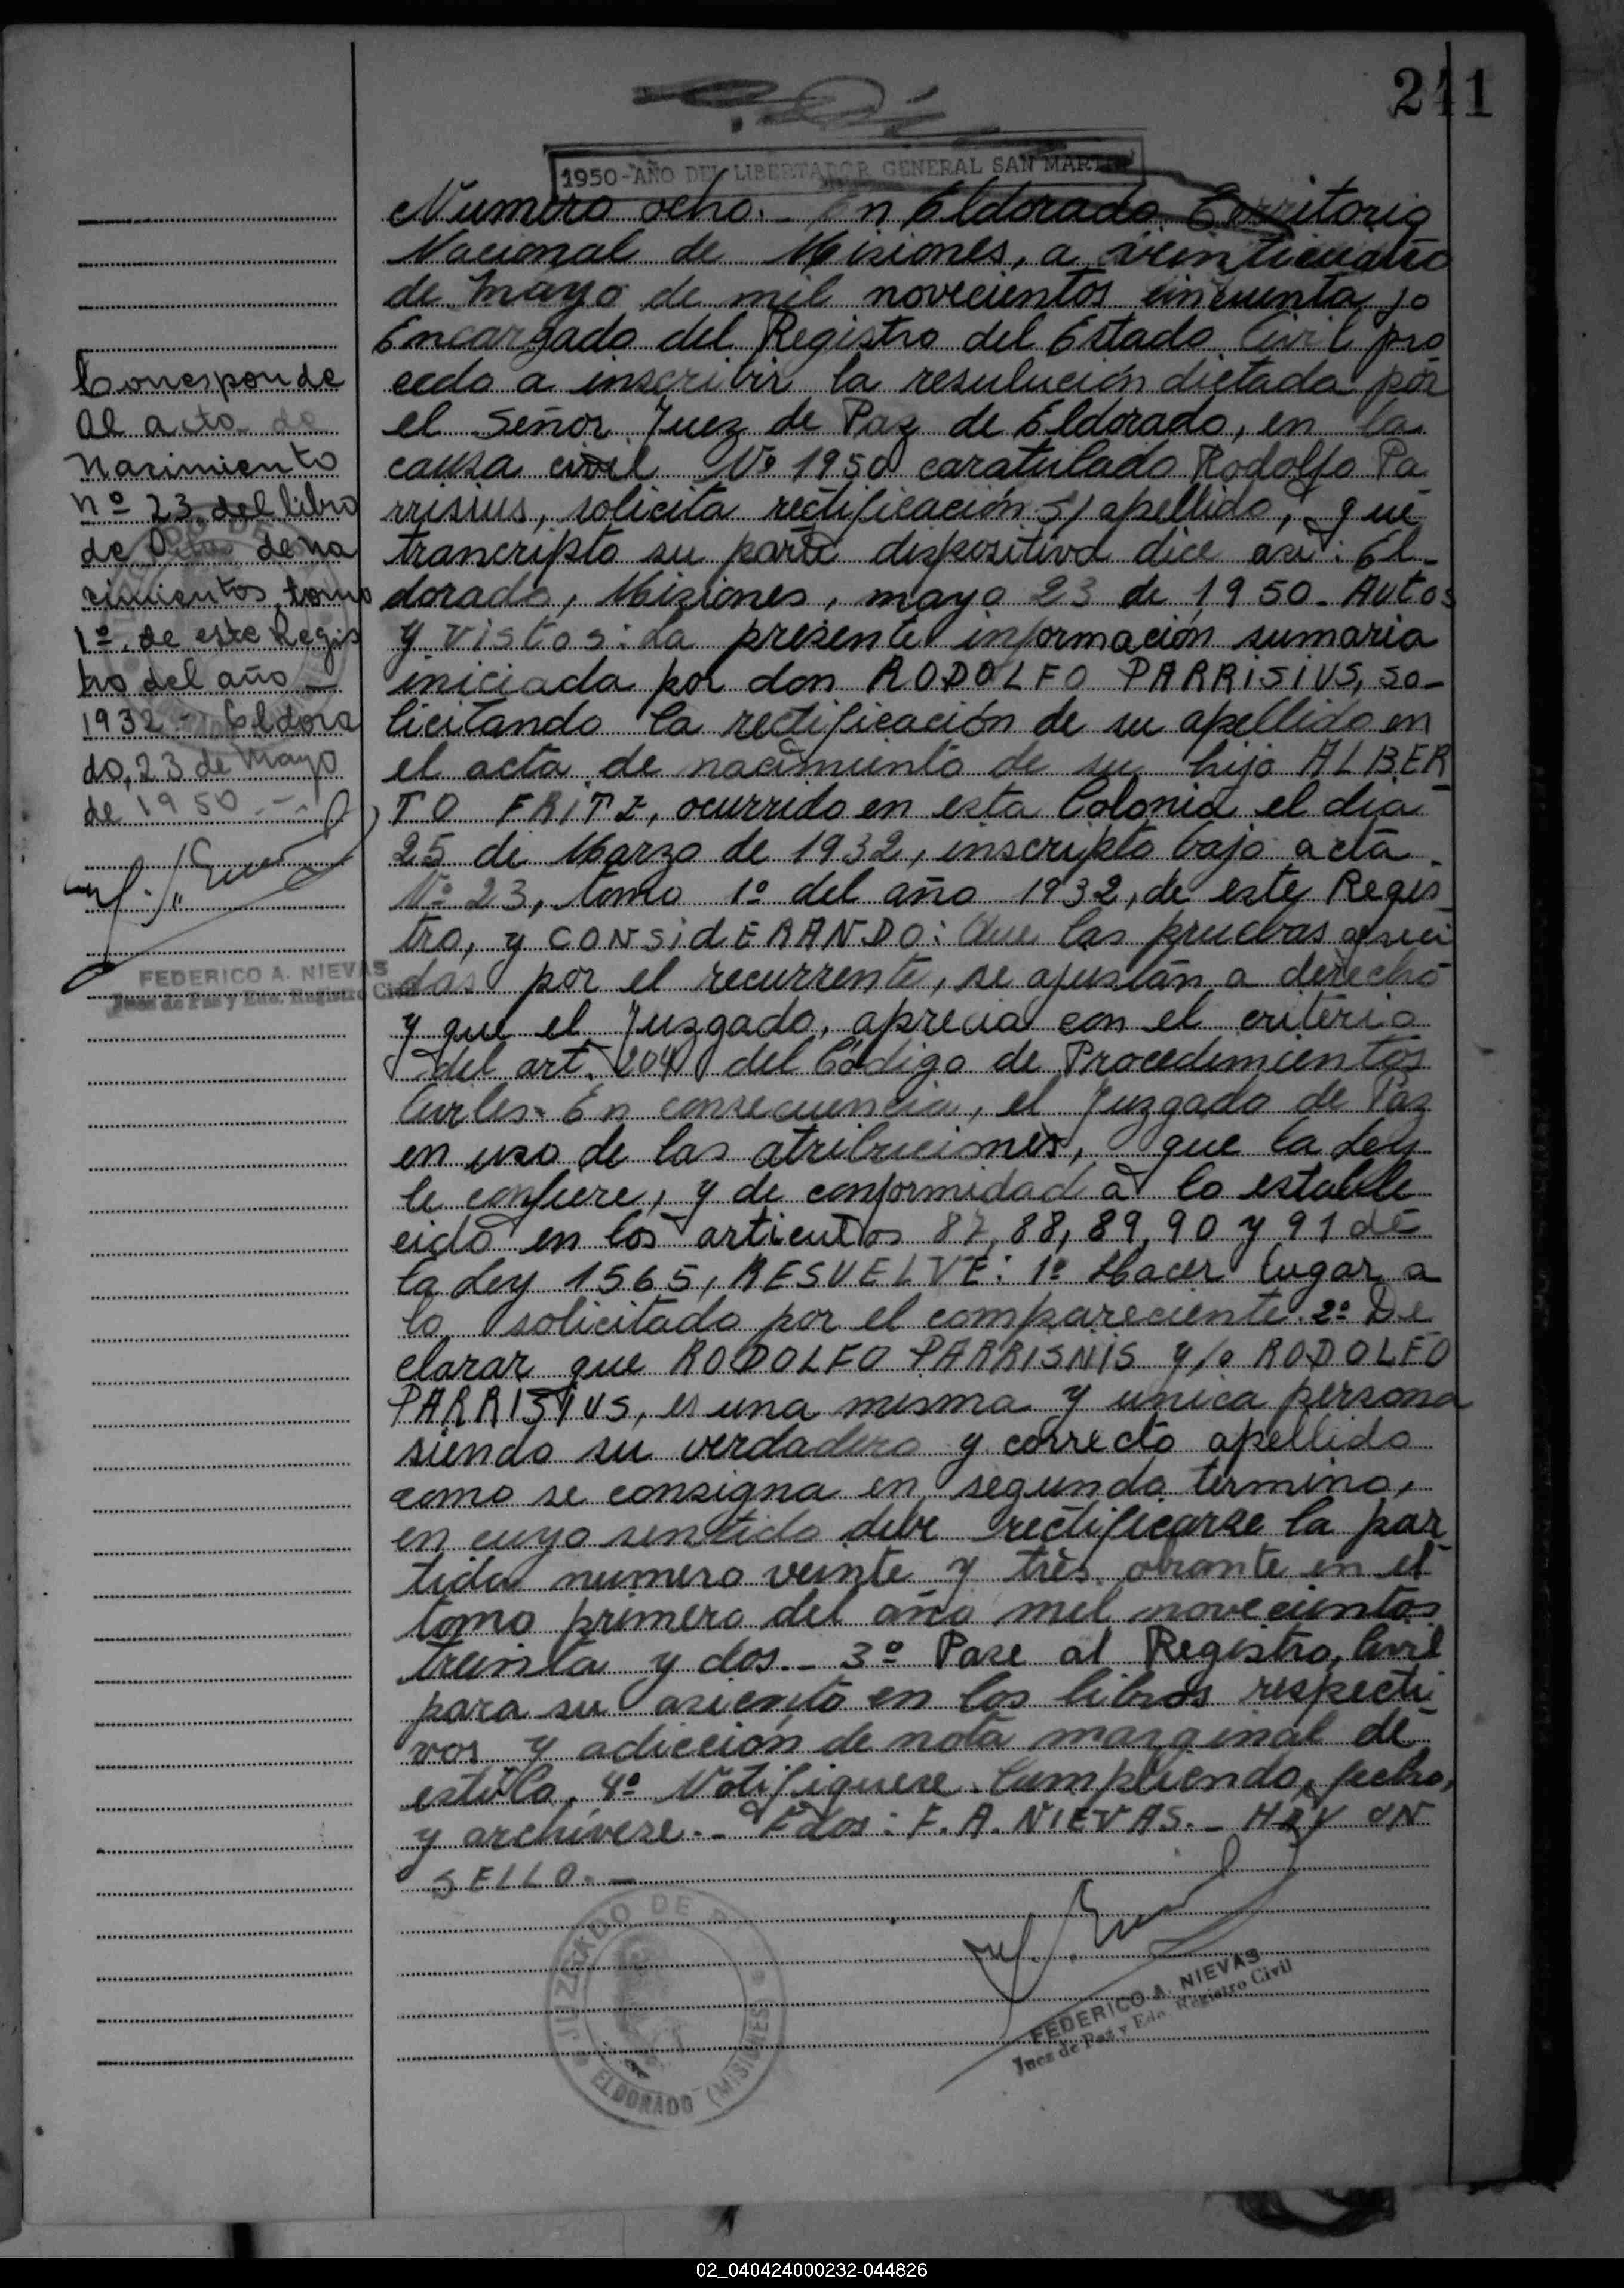 241
1950-AÑO DEL LIBERTADOR GENERAL SAN MARTIN
Numero ocho.- En Eldorado Territorio
Nacional de Misiones, a veinticuatro
de mayo de mil novecientos cincuenta yo
Encargado del Registro del Estado Civil pro
cedo a inscribir la resulución dictada por
el Señor Juez de Paz de Eldorado, en la
causa civil Nº 1950 caratulado Rodolfo Pa
rrisius, solicita rectificación S/ apellido, que
transcripto su parte dispositiva dice asi: El-
dorado, Misiones, mayo 23 de 1950.- Autos
y vistos: La presente información sumaria
iniciada por don RODOLFO PARRISIUS, so-
licitando la rectificación de su apellido en
el acta de nacimiento de su hijo ALBER
TO FRITZ, ocurrido en esta Colonia el dia
25 de Marzo de 1932, inscripto bajo acta
Nº 23, tomo 1º del año 1932, de este Regis-
tro, y CONSidERANDO: Que las pruebas
das por el recurrente, se ajustan a derecho
y que el Juzgado, aprecia con el criterio
del art. 204 del Código de Procedimientos
Civiles.- En consecuencia, el Juzgado de Paz
en uso de las atribuciones, que la Ley
le confiere, y de conformidad a lo estable
cido en los articulos 87, 88, 89, 90 y 91 de
la Ley 1565, RESUELVE: 1º Hacer lugar a
lo solicitado por el compareciente. 2º De
clarar que RODOLFO PARRISNIS y/o RODOLFO
PARRISIUS, es una misma y unica persona
siendo su verdadero y correcto apellido
como se consigna en segundo termino,
en cuyo sentido debe rectificarse la par
tida numero veinte y tres obrante en el
tomo primero del año mil novecientos
treinta y dos.- 3º Pase al Registro Civil
para su asiento en los libros respecti
vos y adicción de nota marginal de
estilo. 4º Notifiquese. Cumpliendo, fecho,
y archivese.- Fdos: F. A. NIEVAS.- HAY UN
SELLO.-
Corresponde
al acta de
Nacimiento
nº 23 del libro
de Actas de na
cimientos tomo
1º, de este Regis
tro del año
1932.- Eldora
do, 23 de Mayo
de 1950.-
FEDERICO A. NIEVAS
Juez de Paz y Edo. Registro Civil
JUZGADO DE P
ELDORADO (MISIONES)
FEDERICO A. NIEVAS
Juez de Paz y Edo. Registro Civil
02_040424000232-044826